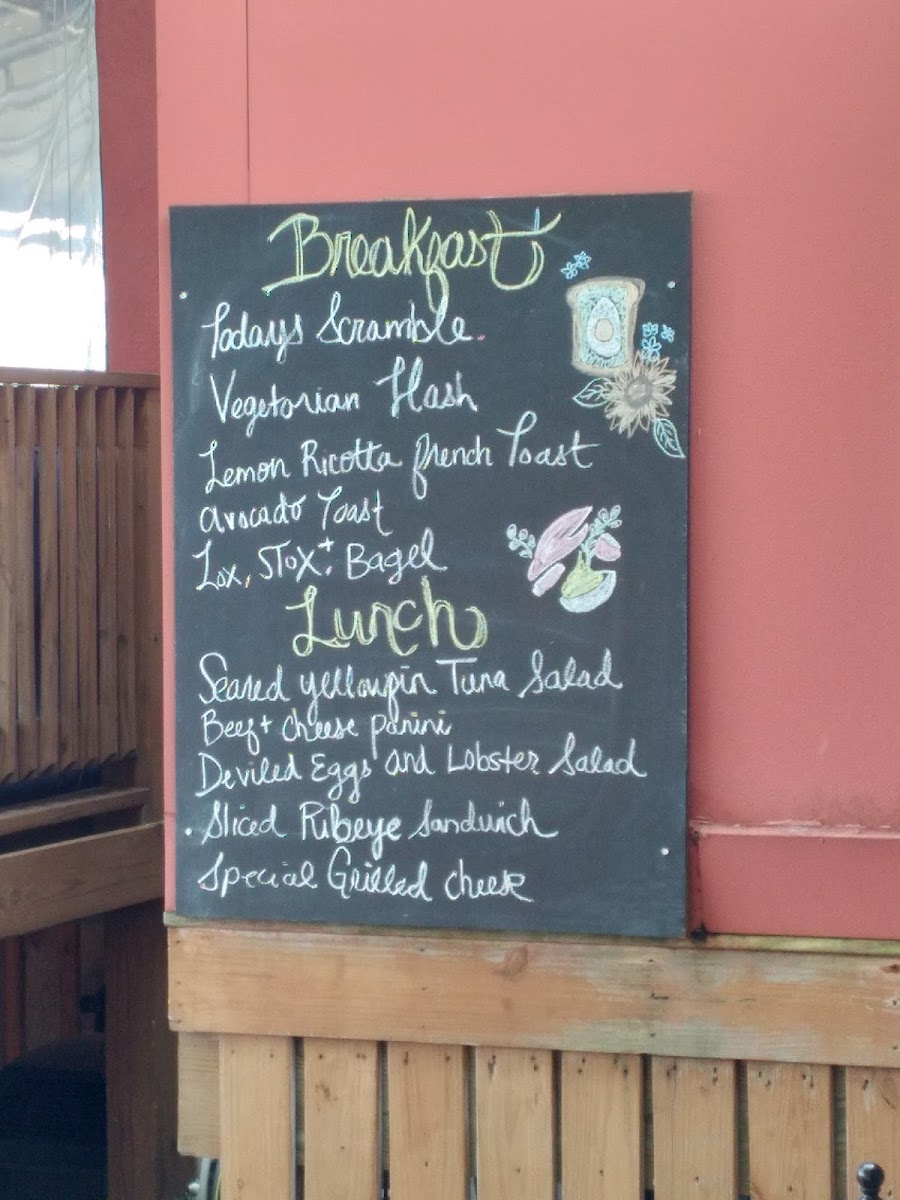 Breakfast
Todays Scramble.
Vegetarian Hash
Lemon Ricotta french Toast
avocado Toast
Lox, STOX + Bagel
Lunch
Seared yellowfin Tuna Salad
Beef + cheese panini
Deviled Eggs and Lobster Salad
Sliced Ribeye Sandwich
Special Grilled cheese